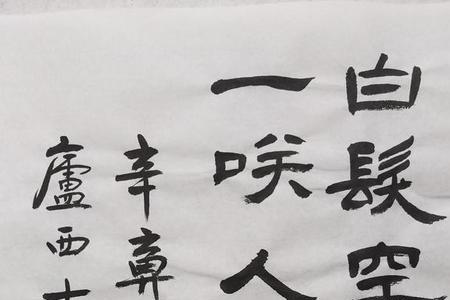 白髮空
一咲人
辛棄
盧西